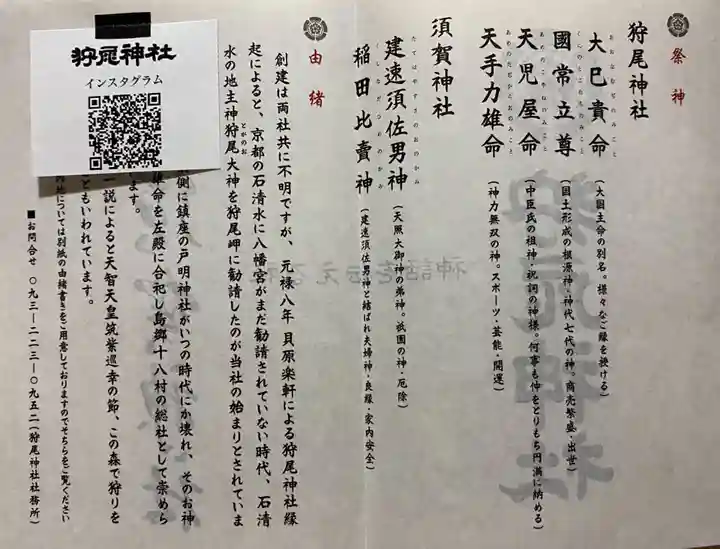 祭神
狩尾神社
大巳貴命（大国主命の別名。様々なご縁を授ける）
おおなむちのみこと
國常立尊（国土形成の根源神・神代七代の神。商売繁盛・出世）
くにのとこたちのみこと
天児屋命（中臣氏の祖神・祝詞の神様。何事も仲をとりもち円満に納める）
あめのこやねのみこと
天手力雄命（神力無双の神。スポーツ・芸能・開運）
あめのたぢからおのみこと
須賀神社
建速須佐男神（天照大御神の弟神。祇園の神・厄除）
たてはやすさのおのかみ
稲田比賣神（建速須佐男神と結ばれ夫婦神・良縁・家内安全）
由緒
創建は両社共に不明ですが、元禄八年貝原楽軒による狩尾神社縁
起によると、京都の石清水に八幡宮がまだ勧請されていない時代、石清
水の地主神狩尾大神を狩尾岬に勧請したのが当社の始まりとされていま
とがのお
側に鎮座の戸明神社がいつの時代にか壊れ、そのお神
雄命を左殿に合祀し島郷十八村の総社として崇めら
ます。
一説によると天智天皇筑紫巡幸の節、この森で狩りを
ともいわれています。
については別紙の由緒書きをご用意しておりますのでそちらをご覧ください
■お問合せ 〇九三―二二三―〇九五二（狩尾神社社務所）
狩尾神社
インスタグラム